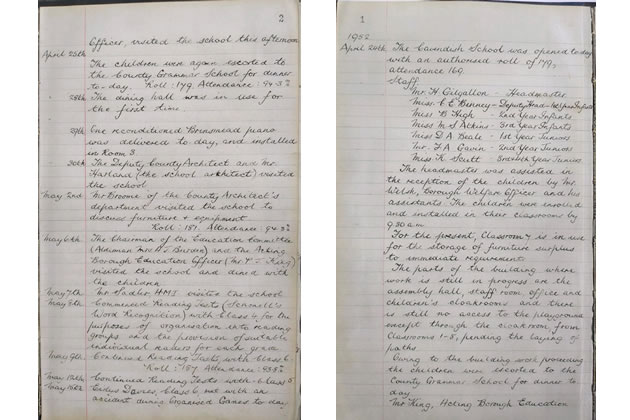 2
Officer, visited the school this afternoon
April 25th The children were again escorted to
the County Grammar School for dinner
to-day. Roll: 179. Attendance: 94.3%
28th The dining hall was in use for
the first time.
29th One reconditioned Brinsmead piano
was delivered to day, and installed
in Room 3.
30th The Deputy County Architect and Mr.
Harland (the school architect) visited
the school
May 2nd Mr Broome of the County Architect's
department visited the school to
discuss furniture & equipment.
Roll: 181. Attendance: 94.3%
May 6th The Chairman of the Education Committee
(Alderman Mrs Burden) and the Acting
Borough Education Officer (Mr T King)
visited the school and dined with
the children
May 7th Mr Sadler HMI visited the school
May 8th Commenced Reading Tests (Schonell's
Word Recognition) with Class 6, for the
purposes of organisation into reading
groups and the provision of suitable
individual readers for each grade.
May 9th Continued Reading Tests with Class 6
Roll: 187. Attendance: 93.8%
Continued Reading Tests with Class 5
Davies Class 6 met with an
accident during Organised Games to-day
1
1952
April 24th The Cavendish School was opened to day
with an authorised roll of 179,
attendance 169.
Staff
Mr. H Gilgallon - Headmaster
Miss C E Benney - Deputy Head - 1st Year Infants
Miss B High - 2nd Year Infants
Miss M S Atkins - 3rd Year Infants
Miss D A Beale - 1st Year Juniors
Mr. F A Gavin - 2nd Year Juniors
Miss K Scutt - 3rd & 4th Year Juniors
The headmaster was assisted in
the reception of the children by Mr.
Welsh, Borough Welfare Officer and his
assistants. The children were enrolled
and installed in their classrooms by
9.30 am
For the present, Classroom 7 is in use
for the storage of furniture surplus
to immediate requirements
The parts of the building where
work is still in progress are the
assembly hall, staff room, office and
children's cloakrooms and there
is still no access to the playground
except through the cloakroom from
Classrooms 1-3, pending the laying of
paths
Owing to the building work proceeding
the children were escorted to the
County Grammar School for dinner to
day
Mr King, Acting Borough Education